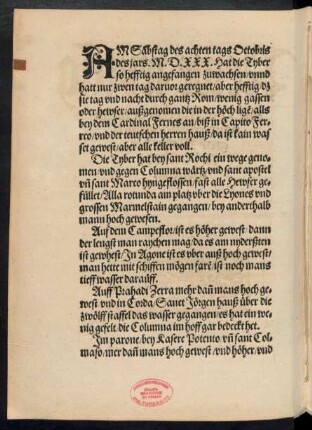 AM Sābstag des achten tags Octobris
des jars. M. D. XXX. Hat die Tyber
so hefftig angefangen zuwachsen/ vnnd
hatt nur zwen tag daruor geregnet/ aber hefftig/ dz
sie tag vnd nacht durch gantz Rom/ wenig gassen
oder hewser/ außgenomen die in der höch ligē/ alls
bey dem Cardinal Fernes an/ biß in Capito Fer-
rco/ vnd der teutschen herren hauß/ da ist kain was
ser gewest/ aber alle keller voll.
Die Tyber hat bey sant Rochi ein wege geno-
men/ vnd gegen Columna wärtz/ vnd sant apostel
vn̄ sant Marco hyngeflossen/ fast alle Hewser ge-
füllet/ Alla rotunda am platz vber die Lyones vnd
grossen Marmelstain gegangen/ bey anderthalb
mann hoch gewesen.
Auff dem Campeflor/ ist es höher gewest/ dann
der lengst man raychen mag/ da es am nyderßten
ist gewhest/ In Agone ist es vber auß hoch gewest/
man hette mit schiffen mögen farē/ ist noch mans
tieff wasser darauff.
Auff Prahadi Zerra mehr dan̄ mans hoch ge-
west/ vnd in Corda/ Sanct Jörgen hauß über die
zwölff staffel das wasser gegangen/ es hat ein we-
nig gefelt/ die Columna im hoff gar bedeckt het.
Im parone/ bey Kasere Potento/ vn̄ sant Col-
maso/ mer dan̄ mans hoch gewest/ vnd höher/ vnd